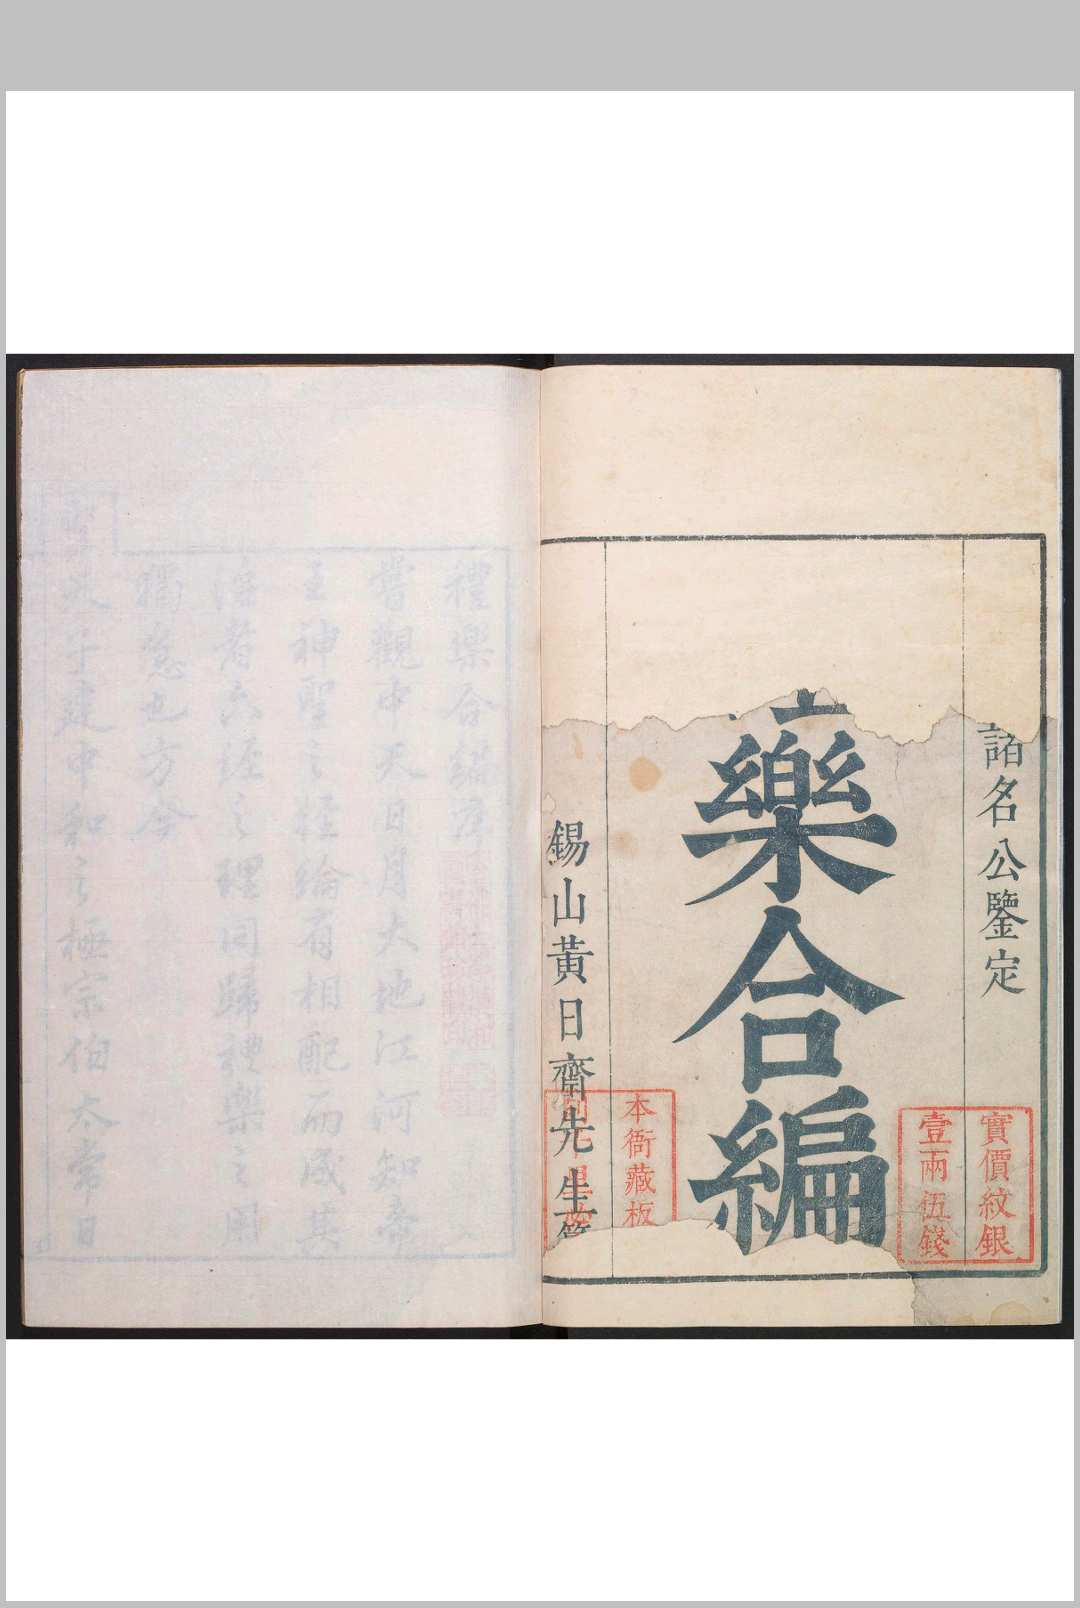 諸名公鑒定
樂合編
錫山黃日齋先生
實價紋銀
壹兩伍錢
本衙藏板
禮樂合編序
嘗觀中天日月大地江河知帝
王神聖之經綸有相配而成其
深者六經之理同歸禮樂之用
獨急也方今
天子建中和之極宗伯太常日